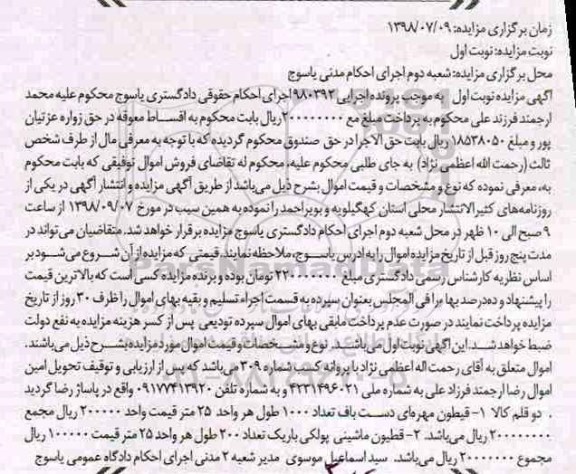 زمان برگزاری مزایده: ۱۳۹۸/۰۷/۰۹
نوبت مزایده: نوبت اول
محل برگزاری مزایده: شعبه دوم اجرای احکام مدنی یاسوج
آگهی مزایده نوبت اول به موجب پرونده اجرایی ۹۸۰۳۹۲ اجرای احکام حقوقی دادگستری یاسوج محکوم علیه محمد
ارجمند فرزند علی محکوم به پرداخت مبلغ مع ۲۰۰۰۰۰۰۰۰ ریال بابت محکوم به اقساط معوقه در حق زواره عزتیان
پور و مبلغ ۱۸۵۳۸۰۵۰ ریال بابت حق الاجرا در حق صندوق محکوم گردیده که با توجه به معرفی مال از طرف شخص
ثالث (رحمت الله اعظمی نژاد) به جای طلبی محکوم علیه، محکوم له تقاضای فروش اموال توقیفی که بابت محکوم
به، معرفی نموده که نوع و مشخصات و قیمت اموال بشرح ذیل می‌باشد از طریق آگهی مزایده و انتشار آگهی در یکی از
روزنامه‌های کثیرالانتشار محلی استان کهگیلویه و بویراحمد را نموده به همین سبب در مورخ ۱۳۹۸/۰۹/۰۷ از ساعت
۹ صبح الی ۱۰ ظهر در محل شعبه دوم اجرای احکام دادگستری یاسوج مزایده برقرار خواهد شد. متقاضیان می‌تواند در
مدت پنج روز قبل از تاریخ مزایده اموال را به آدرس یاسوج، ملاحظه نمایند. قیمتی که مزایده از آن شروع می‌شود بر
اساس نظریه کارشناس رسمی دادگستری مبلغ ۲۲۰۰۰۰۰۰ تومان بوده و برنده مزایده کسی است که بالاترین قیمت
را پیشنهاد و ده‌درصد بها را فی المجلس بعنوان سپرده به قسمت اجراء تسلیم و بقیه بهای اموال را ظرف ۳۰ روز از تاریخ
مزایده پرداخت نمایند در صورت عدم پرداخت مابقی بهای اموال سپرده تودیعی پس از کسر هزینه مزایده به نفع دولت
ضبط خواهد شد. این آگهی نوبت اول می‌باشد. نوع و مشخصات و قیمت اموال مورد مزایده بشرح ذیل می‌باشند.
اموال متعلق به آقای رحمت اله اعظمی نژاد با پروانه کسب شماره ۳۰۹ می‌باشد که پس از ارزیابی و توقیف تحویل امین
اموال رضا ارجمند فرزاد علی به شماره ملی ۴۲۳۱۳۹۶۰۲۱ و به شماره تلفن ۰۹۱۷۷۴۱۳۹۲۰ واقع در پاساژ رضا گردید
. دو قلم کالا ۱- قیطون مهره‌ای دست باف تعداد ۱۰۰۰ طول هر واحد ۲۵ متر قیمت واحد ۲۰۰۰۰۰ ریال مجمع
۲۰۰۰۰۰۰۰۰ ریال می‌باشد. ۲- قطیون ماشینی پولکی باریک تعداد ۲۰۰ طول هر واحد ۲۵ متر قیمت ۱۰۰۰۰۰ ریال
مجموع ۲۰۰۰۰۰۰۰ ریال می‌باشد. سید اسماعیل موسوی مدیر شعبه ۲ مدنی اجرای احکام دادگاه عمومی یاسوج